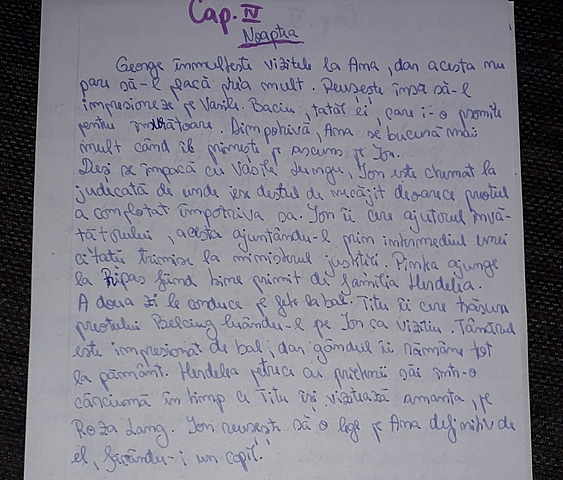 Cap. IV
Noaptea
George înmulțește vizitele la Ana, dar acesta nu
pare să-l placă prea mult. Reușește însă să-l
impresioneze pe Vasile Baciu, tatăl ei, care i-o promite
pentru însurătoare. Dimpotrivă, Ana se bucură mai
mult când îl primește pe ascuns pe Ion.
Deși se împacă cu Vasile Lungu, Ion este chemat la
judecată de unde iese destul de necăjit deoarece preotul
a complotat împotriva sa. Ion îi cere ajutorul învă-
tătorului, acesta ajutându-l prin intermediul unei
citații trimise la ministrul justiției. Pintea ajunge
la Pripas fiind bine primit de familia Herdelea.
A doua zi le conduce pe fete la bal. Titu îi cere trăsura
preotului Belciug luându-l pe Ion ca vizitiu. Tânărul
este impresionat de bal, dar gândul îi rămâne tot
la pământ. Herdelea petrece cu prietenii săi într-o
cârciumă în timp ce Titu își vizitează amanta, pe
Roza Lang. Ion reușește să o lege pe Ana definitiv de
el, făcându-i un copil.